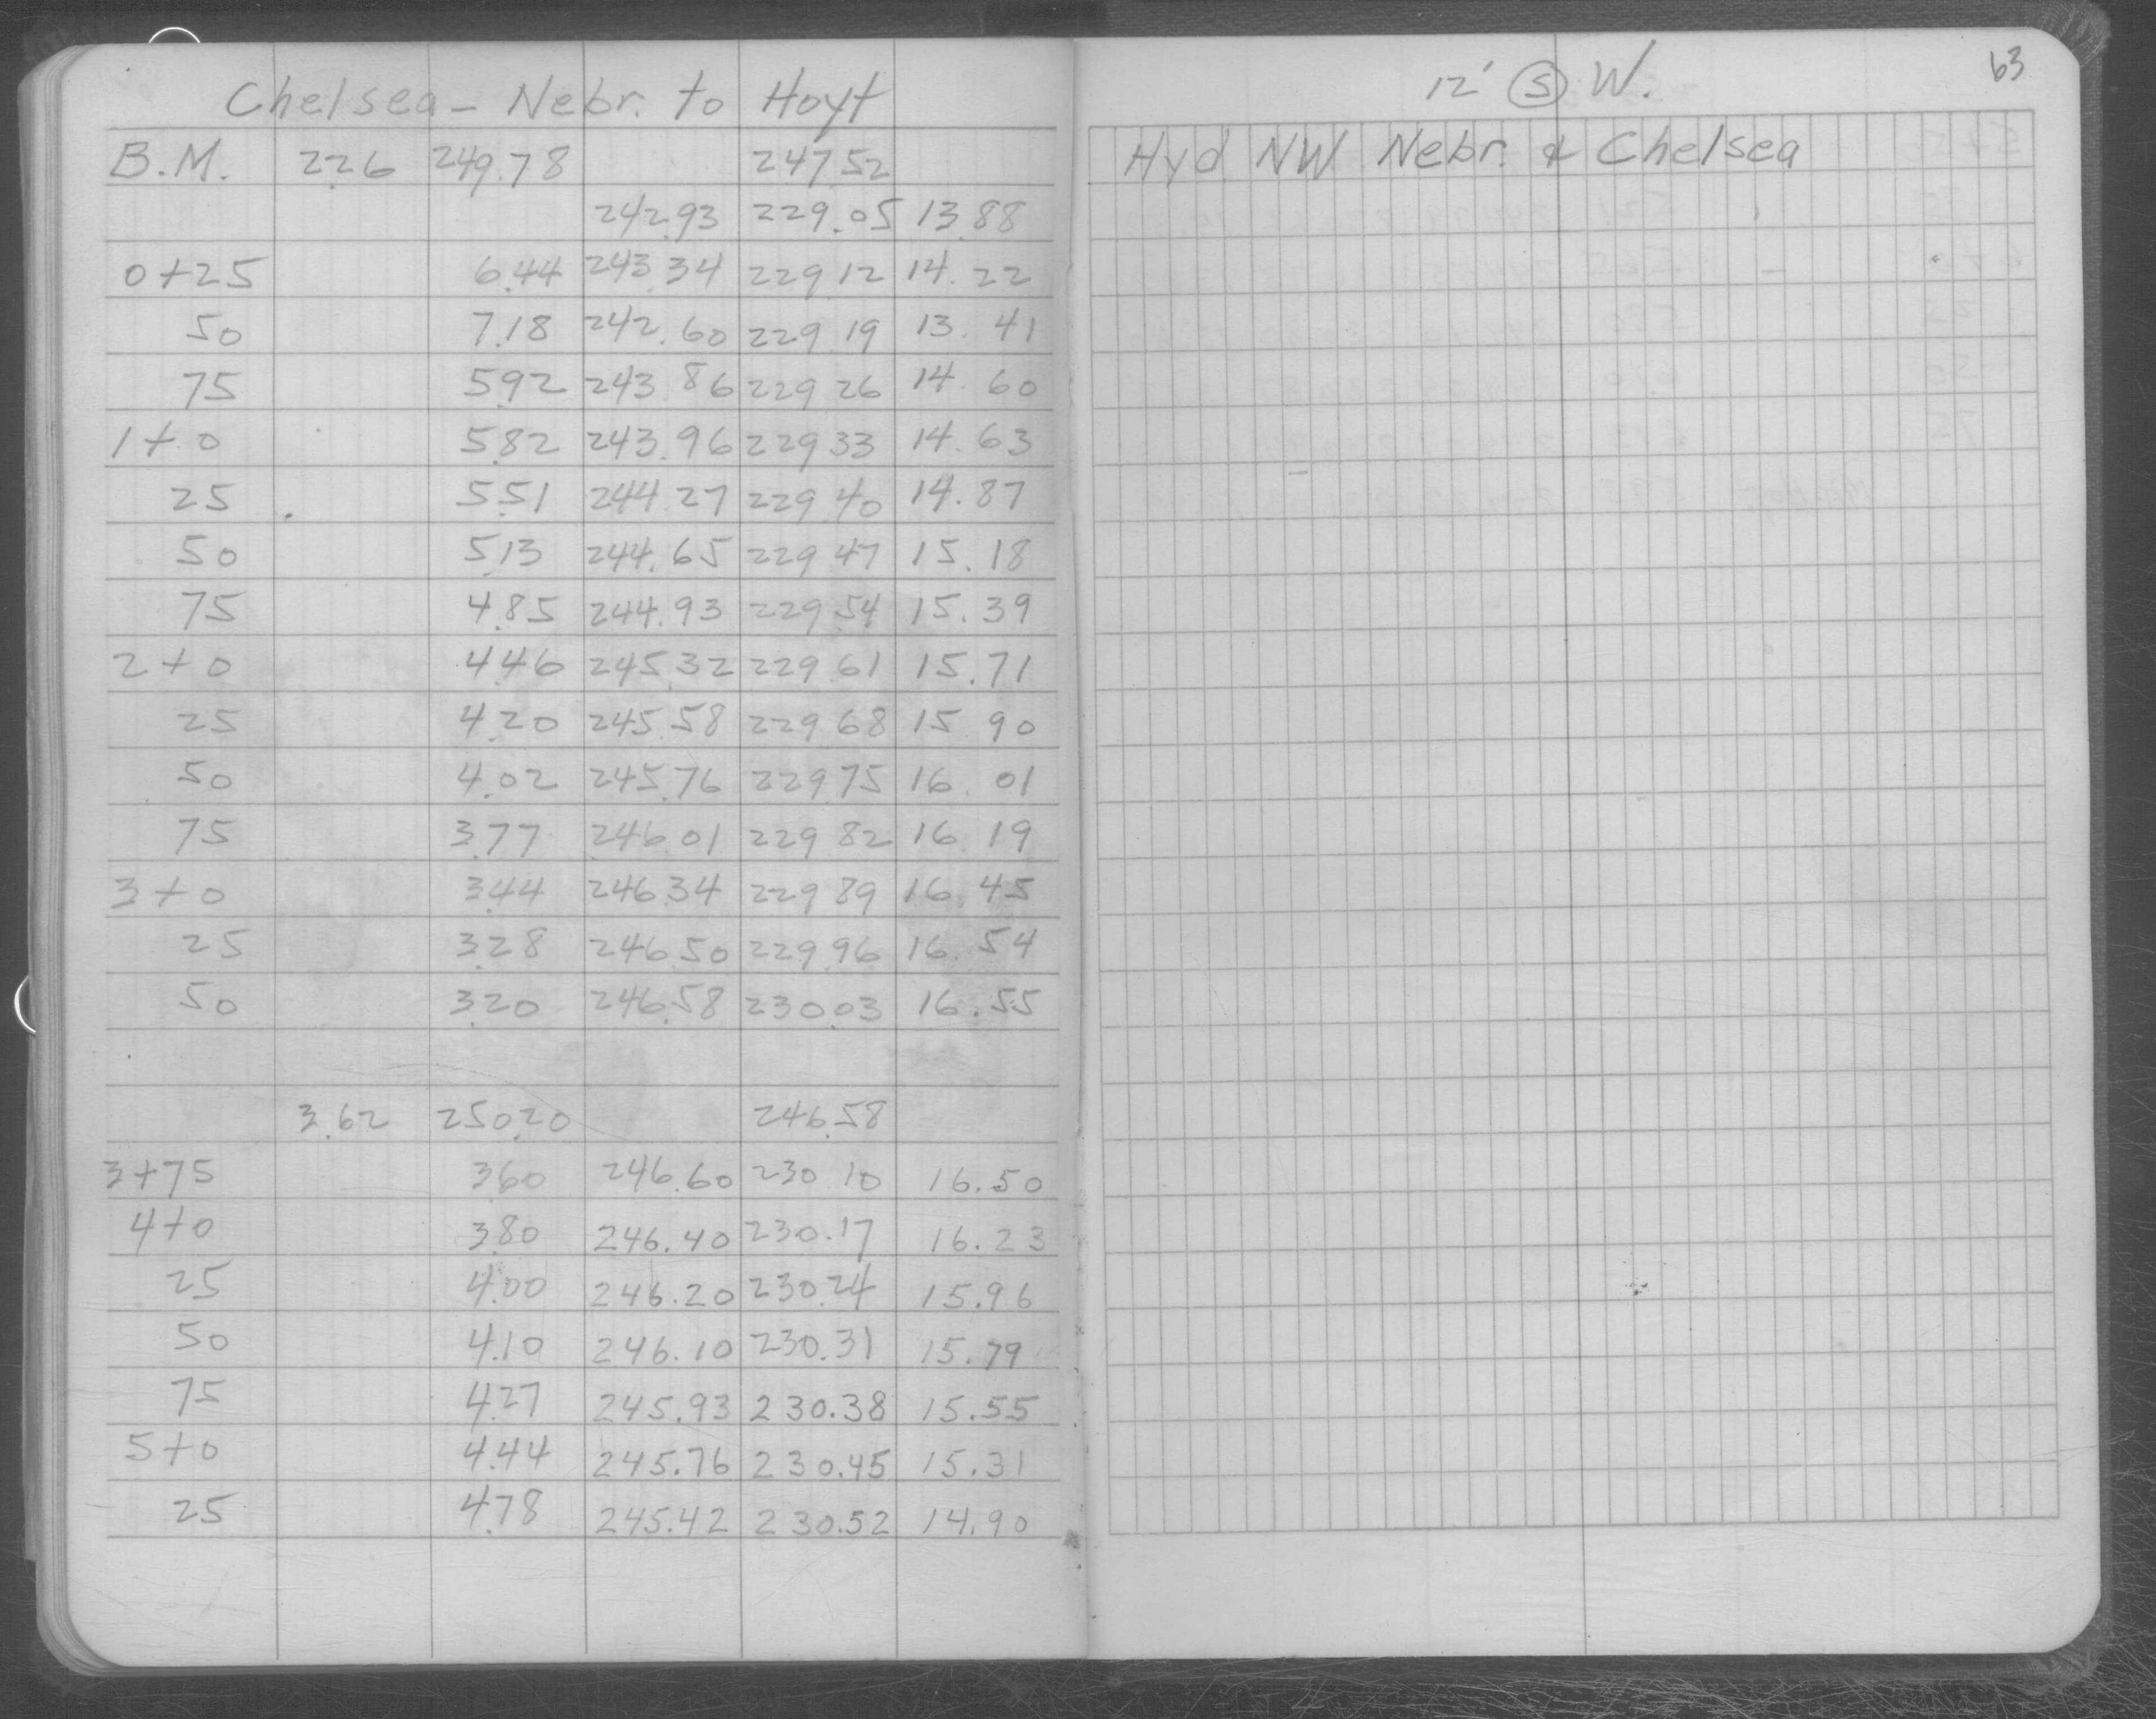 Chelsea - Nebr. to Hoyt
B.M. 2.26 249.78 247.52
242.93 229.05 13.88
0+25 6.44 243.34 229.12 14.22
50 7.18 242.60 229.19 13.41
75 5.92 243.86 229.26 14.60
1+0 5.82 243.96 229.33 14.63
25 5.51 244.27 229.40 14.87
50 5.13 244.65 229.47 15.18
75 4.85 244.93 229.54 15.39
2+0 4.46 245.32 229.61 15.71
25 4.20 245.58 229.68 15.90
50 4.02 245.76 229.75 16.01
75 3.77 246.01 229.82 16.19
3+0 3.44 246.34 229.89 16.45
25 3.28 246.50 229.96 16.54
50 3.20 246.58 230.03 16.55
3.62 250.20 246.58
3+75 3.60 246.60 230.10 16.50
4+0 3.80 246.40 230.17 16.23
25 4.00 246.20 230.24 15.96
50 4.10 246.10 230.31 15.79
75 4.27 245.93 230.38 15.55
5+0 4.44 245.76 230.45 15.31
25 4.78 245.42 230.52 14.90
63
12' Ⓢ W.
Hyd NW Nebr. & Chelsea